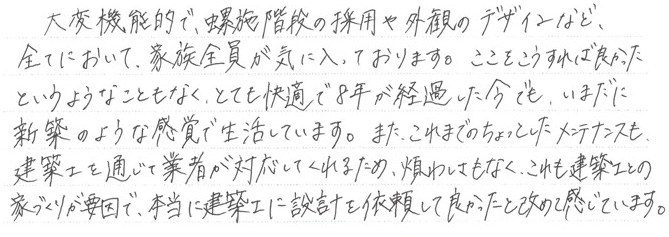 大変機能的で、螺旋階段の採用や外観のデザインなど、
全てにおいて、家族全員が気に入っております。ここをこうすれば良かった
というようなこともなく、とても快適で8年が経過した今でも、いまだに
新築のような感覚で生活しています。また、これまでのちょっとしたメンテナンスも、
建築士を通じて業者が対応してくれるため、煩わしさもなく、これも建築士との
家づくりが要因で、本当に建築士に設計を依頼して良かったと改めて感じています。